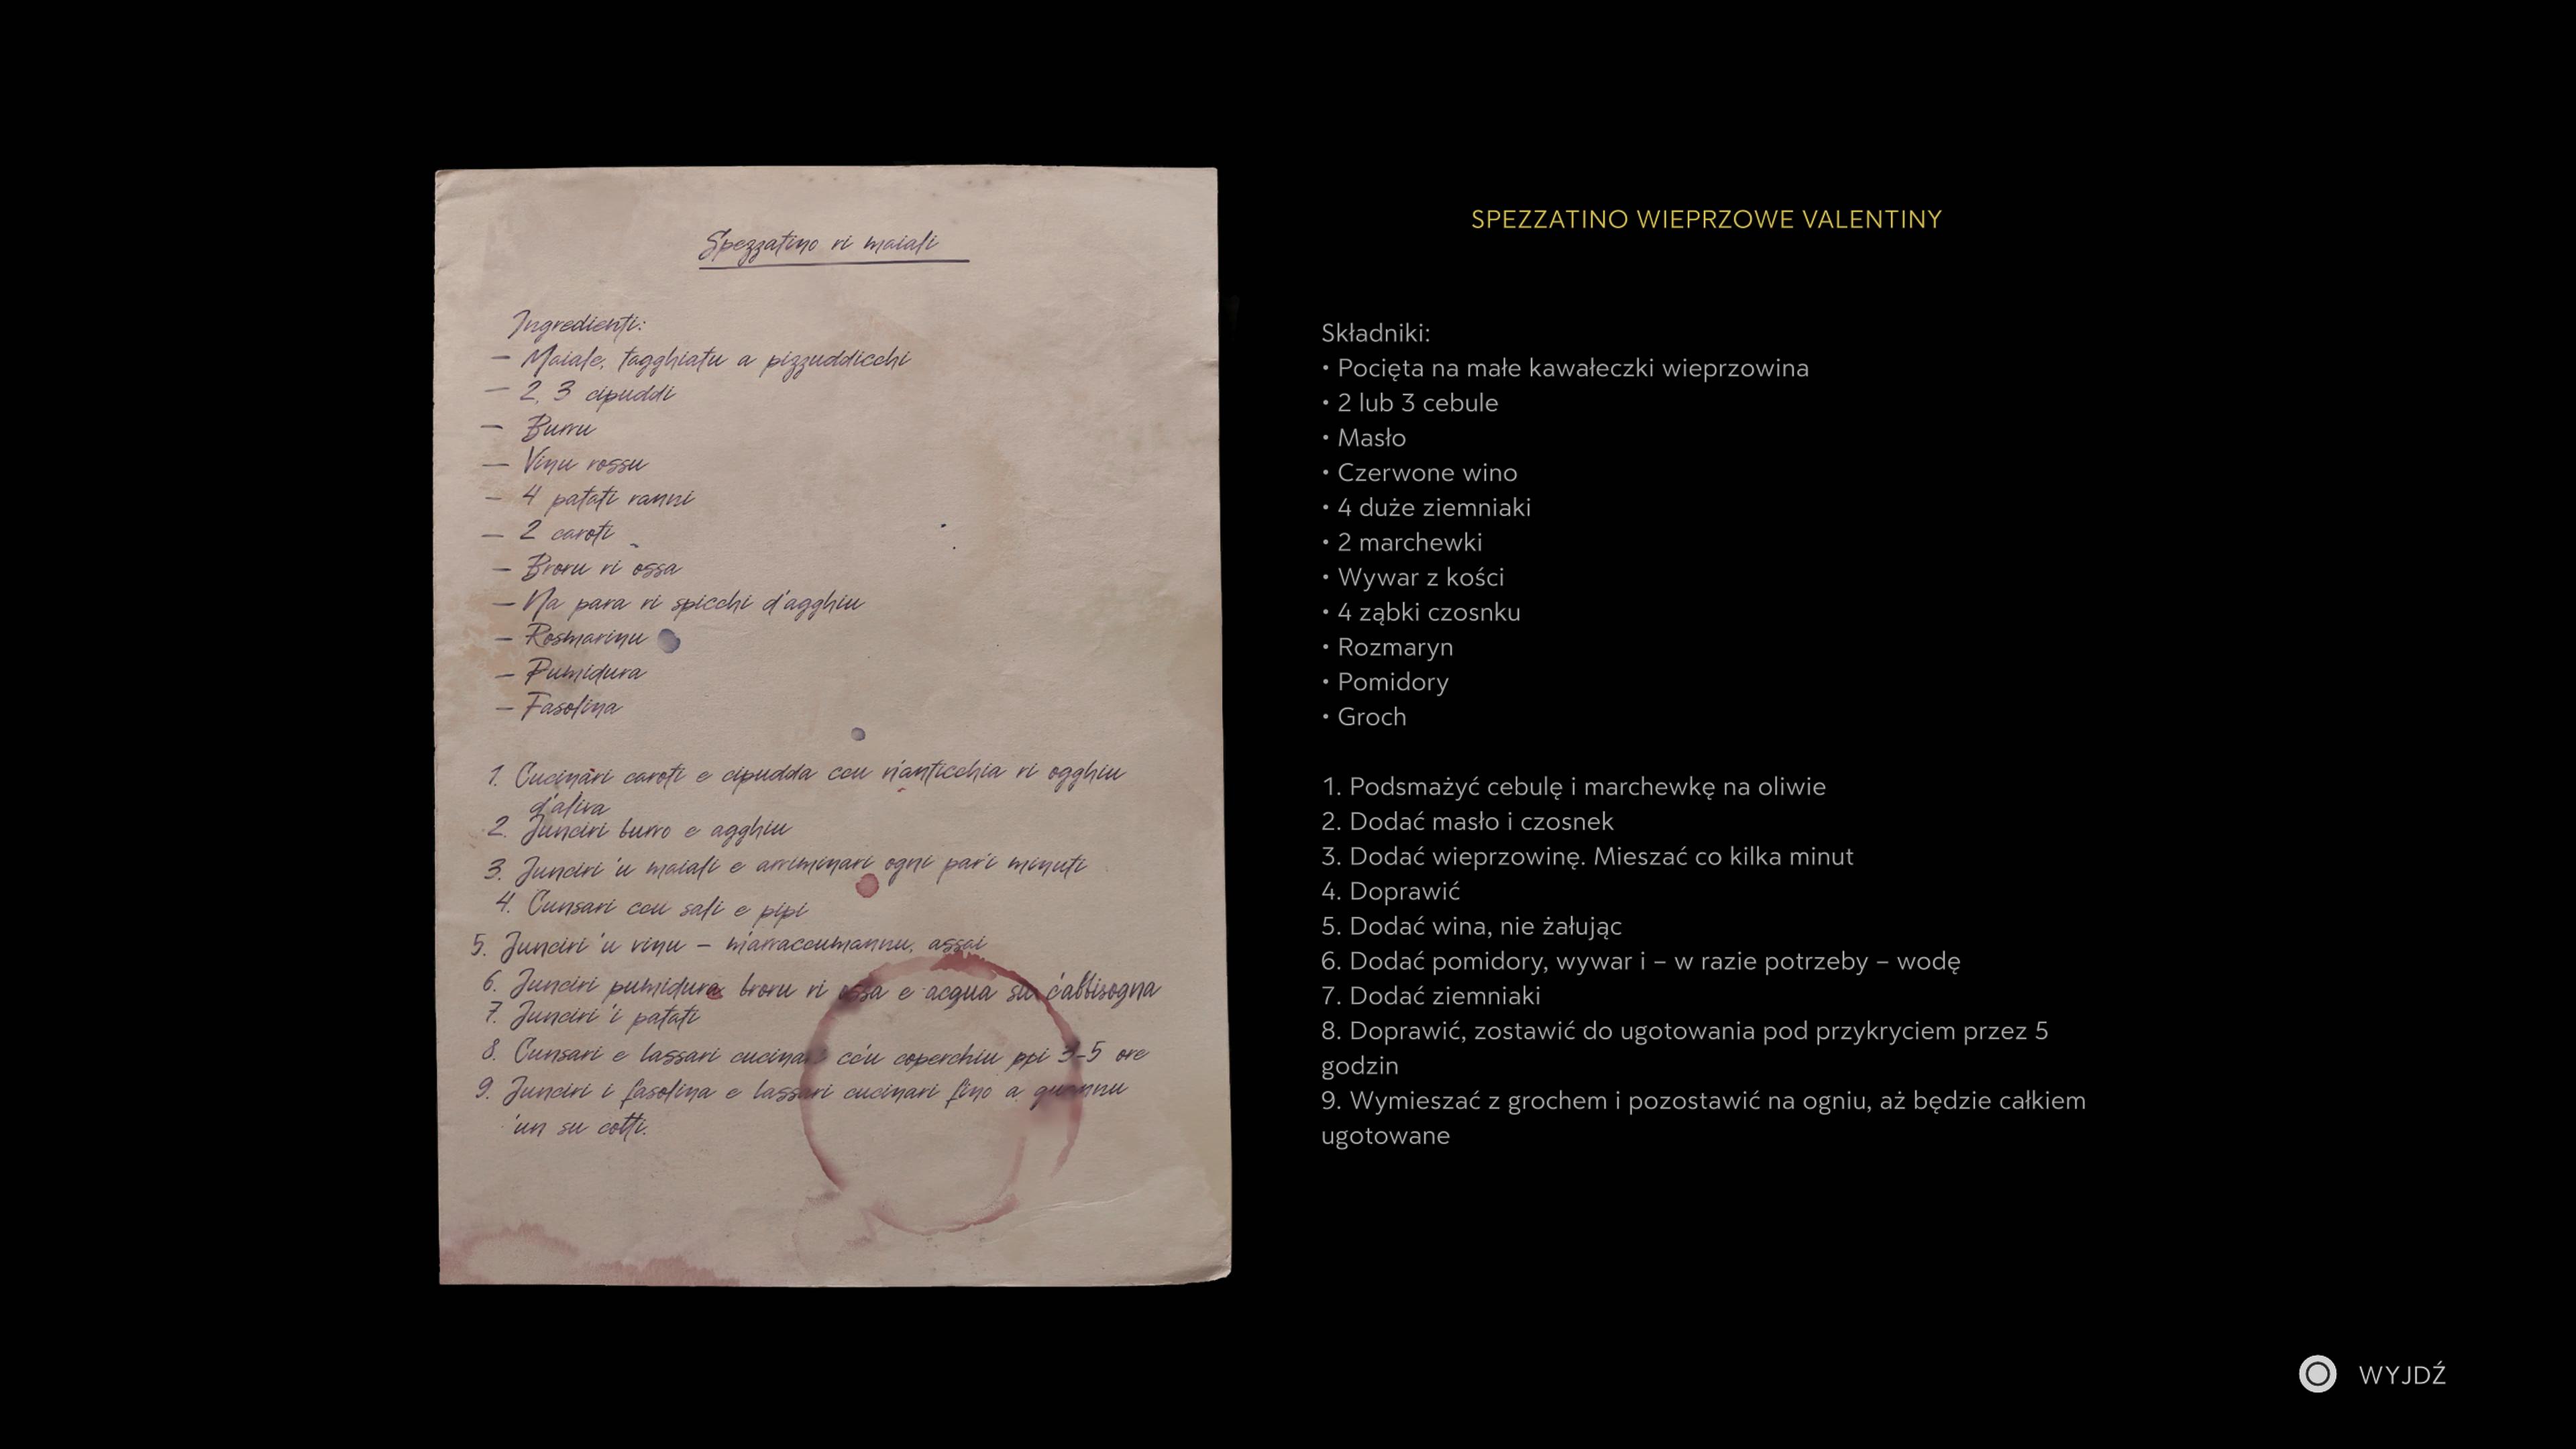 Spezzatino ri maiali
Ingredienti:
– Maiale, tagghiatu a pizzuddicchi
– 2, 3 cipuddi
– Burru
– Vinu rossu
– 4 patati ranni
– 2 caroti
– Broru ri ossa
– Na para ri spicchi d'agghiu
– Rosmarinu
– Pumidura
– Fasolina
1. Cucinari caroti e cipudda ccu n'anticchia ri ogghiu
d'aliva
2. Junciri burro e agghiu
3. Junciri 'u maiali e arriminari ogni par'i minuti
4. Cunsari ccu sali e pipi
5. Junciri 'u vinu – m'arraccumannu, assai
6. Junciri pumidura broru ri ossa e acqua su c'abbisogna
7. Junciri 'i patati
8. Cunsari e lassari cucinari cc'u coperchiu ppi 3-5 ore
9. Junciri i fasolina e lassari cucinari fino a quannu
'un su cotti.
SPEZZATINO WIEPRZOWE VALENTINY
Składniki:
• Pocięta na małe kawałeczki wieprzowina
• 2 lub 3 cebule
• Masło
• Czerwone wino
• 4 duże ziemniaki
• 2 marchewki
• Wywar z kości
• 4 ząbki czosnku
• Rozmaryn
• Pomidory
• Groch
1. Podsmażyć cebulę i marchewkę na oliwie
2. Dodać masło i czosnek
3. Dodać wieprzowinę. Mieszać co kilka minut
4. Doprawić
5. Dodać wina, nie żałując
6. Dodać pomidory, wywar i – w razie potrzeby – wodę
7. Dodać ziemniaki
8. Doprawić, zostawić do ugotowania pod przykryciem przez 5
godzin
9. Wymieszać z grochem i pozostawić na ogniu, aż będzie całkiem
ugotowane
WYJDŹ